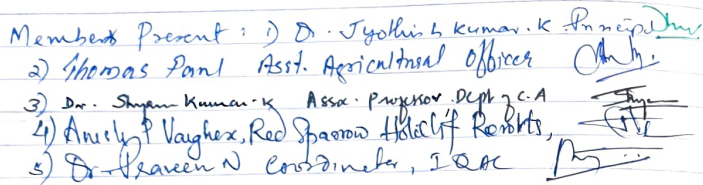 Members Present : 1) Dr. Jyothish Kumar. K Principal
2) Thomas Paul Asst. Agricultural Officer
3) Dr. Shyam Kumar. K Asso. Professor. Dept of C.A
4) P Varghese, Red Sparrow Resorts,
5) Dr. Praveen N Coordinator, IQAC